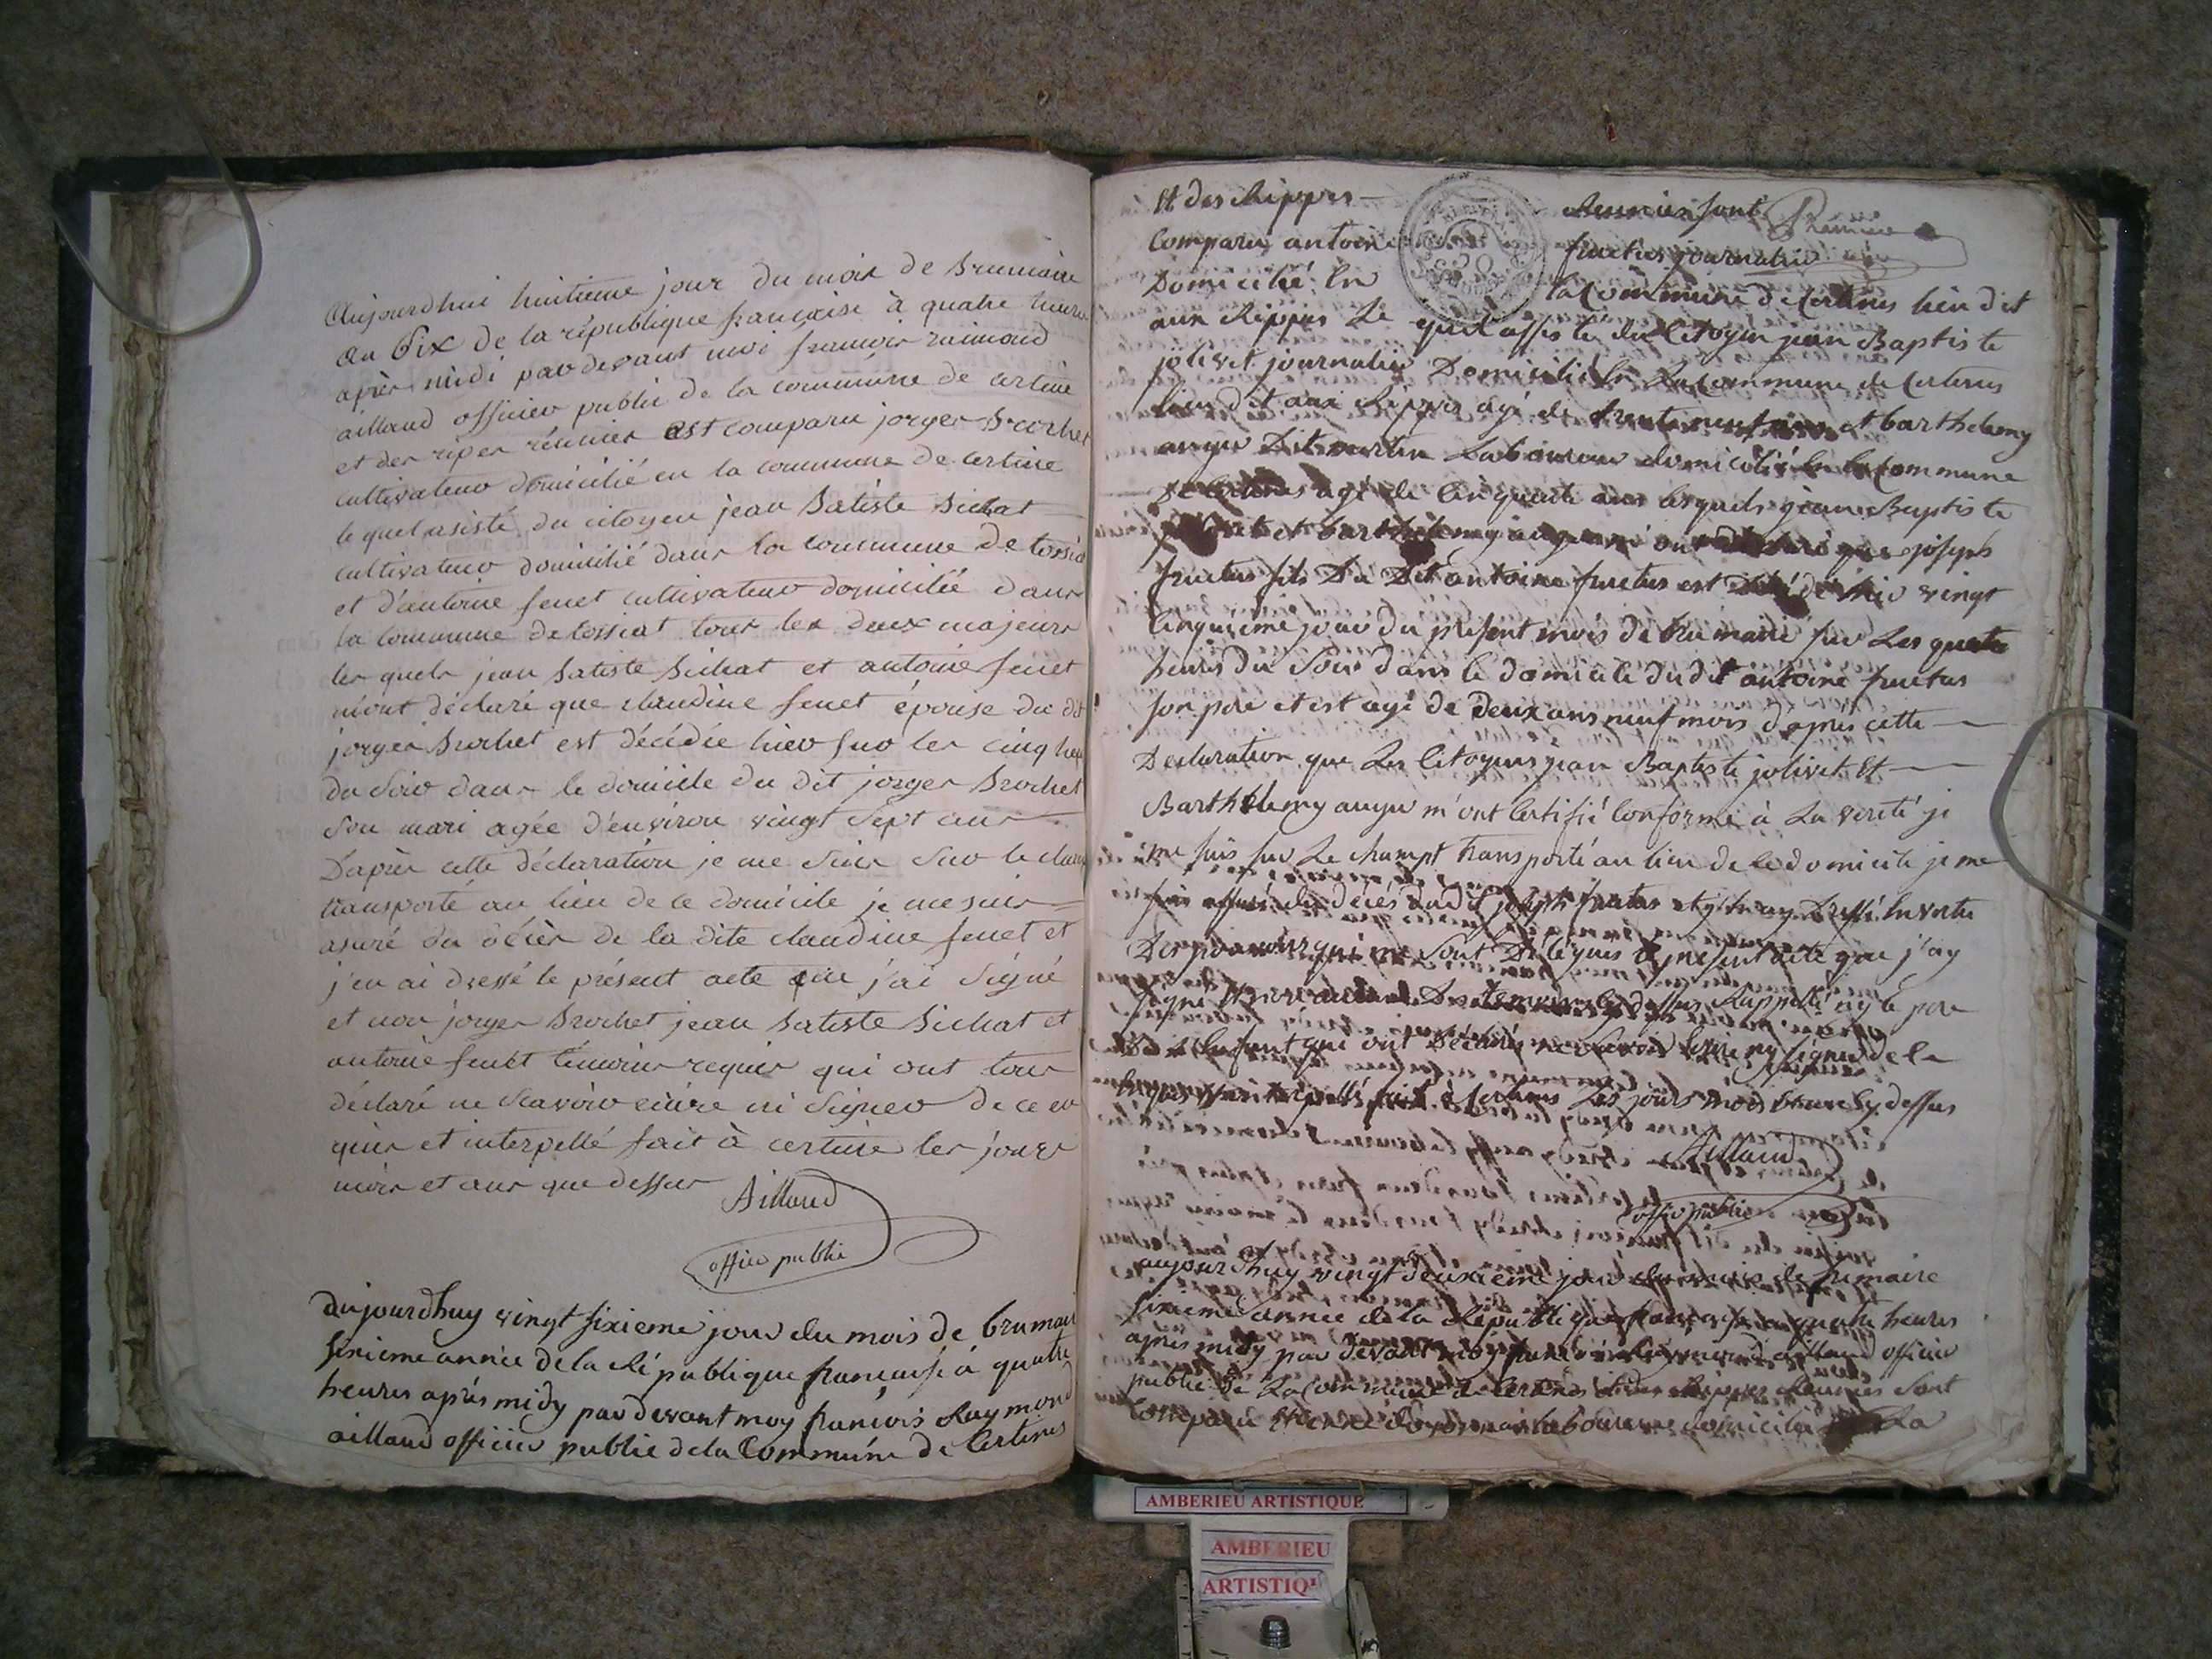 Aujourdhui huitieme jour du mois de brumaire
an six de la république française à quatre heures
après midi pardevant moi francois raimond
aillaud officier public de la commune de certine
et des ripes réunies est comparu jorges brochet
cultivateur domicilié en la commune de certine
le quel asisté du citoyen jean batiste bichat
cultivateur domicilié dans la commune de tossia
et d'antoine feuet cultivateur domicilié dans
la commune de tossiat tous les deux majeurs
les quels jean batiste bichat et antoine feuet
m'ont déclaré que claudine feuet épouse du dit
jorges brochet est décédée hier sur les cinq heu
du soir dans le domicile du dit jorges brochet
son mari agée d'environ vingt sept ans
D'après cette déclaration je me suis sur le cham
transporté au lieu de ce domicile je me suis
asuré du décès de la dite claudine feuet et
j'en ai dressé le présent acte que j'ai signé
et non jorges brochet jean batiste bichat et
antoine feuet témoins requis qui ont tous
déclaré ne scavoir écrire ni signer de ce en
quis et interpellé fait à certine les jours
mois et ans que dessus
Aillaud
offier public
aujourdhuy vingt sixieme jour du mois de brumair
sixieme année de la République française à quatre
heures après midy par devant moy françois Raymond
aillaud officier public de la Commune de Certines
Et des Rippes Reunies sont
Comparu antoine fruetus journalier
Domicilié En la Commune de Certines lieu dit
aux Rippes Le quel assisté du Citoyen jean Baptiste
jolivet journalier Domicilié En La Commune de Certines
lieu dit aux Rippes agé de trente neuf ans et barthelemy
auger Dit martin Laboureur domicilié En la Commune
De Certines agé de Cinquante ans lesquels jean Baptiste
jolivet et barthelemy auger m'ont déclaré que joseph
fruetus fils Du Dit antoine fruetus est Décédé hier vingt
Cinquième jour du présent mois de brumaire sur Les quatre
heures du Soir dans le domicile dudit antoine fruetus
son père et est agé de deux ans neuf mois d'après cette
Declaration que Les Citoyens jean Baptiste jolivet Et
Barthelemy auger m'ont Certifié Conforme à La verité je
me suis sur Le champt transporté au lieu de ce domicile je me
suis assuré du décès dudit joseph fruetus et j'en ay Dressé En vertu
Des pouvoirs qui me sont Délégués le present acte que j'ay
signé Et non Les Dits temoins cy dessus Rappellé ny le père
De l'enfant qui ont Déclarés ne Scavoir écrire ny signer de ce
Enquis Et interpellé fait à Certines Les jours mois et an cy dessus
Aillaud
offier public
aujourdhuy vingt deuxieme jour du mois de frimaire
sixieme année de la République française à quatre heures
après midy par devant moy françois Raymond aillaud officier
public de La Commune de Certines Et des Rippes Réunies sont
Comparu Etienne laboureur domicilié La
AMBERIEU ARTISTIQUE
AMBERIEU
ARTISTIQ